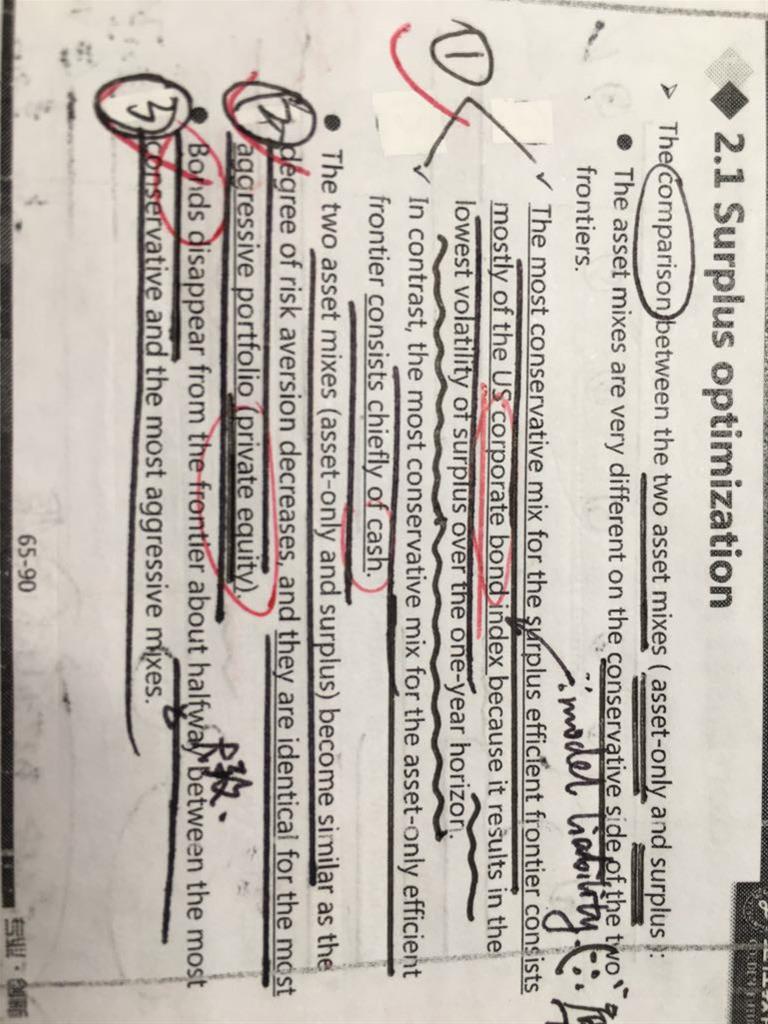 2.1 Surplus optimization
➢ The comparison between the two asset mixes ( asset-only and surplus ):
● The asset mixes are very different on the conservative side of the two
frontiers.
∵ model liability
①
✓ The most conservative mix for the surplus efficient frontier consists
mostly of the US corporate bond index because it results in the
lowest volatility of surplus over the one-year horizon.
✓ In contrast, the most conservative mix for the asset-only efficient
frontier consists chiefly of cash.
● The two asset mixes (asset-only and surplus) become similar as the
② degree of risk aversion decreases, and they are identical for the most
aggressive portfolio (private equity).
● Bonds disappear from the frontier about halfway between the most
③ conservative and the most aggressive mixes.
65-90
专业·创新